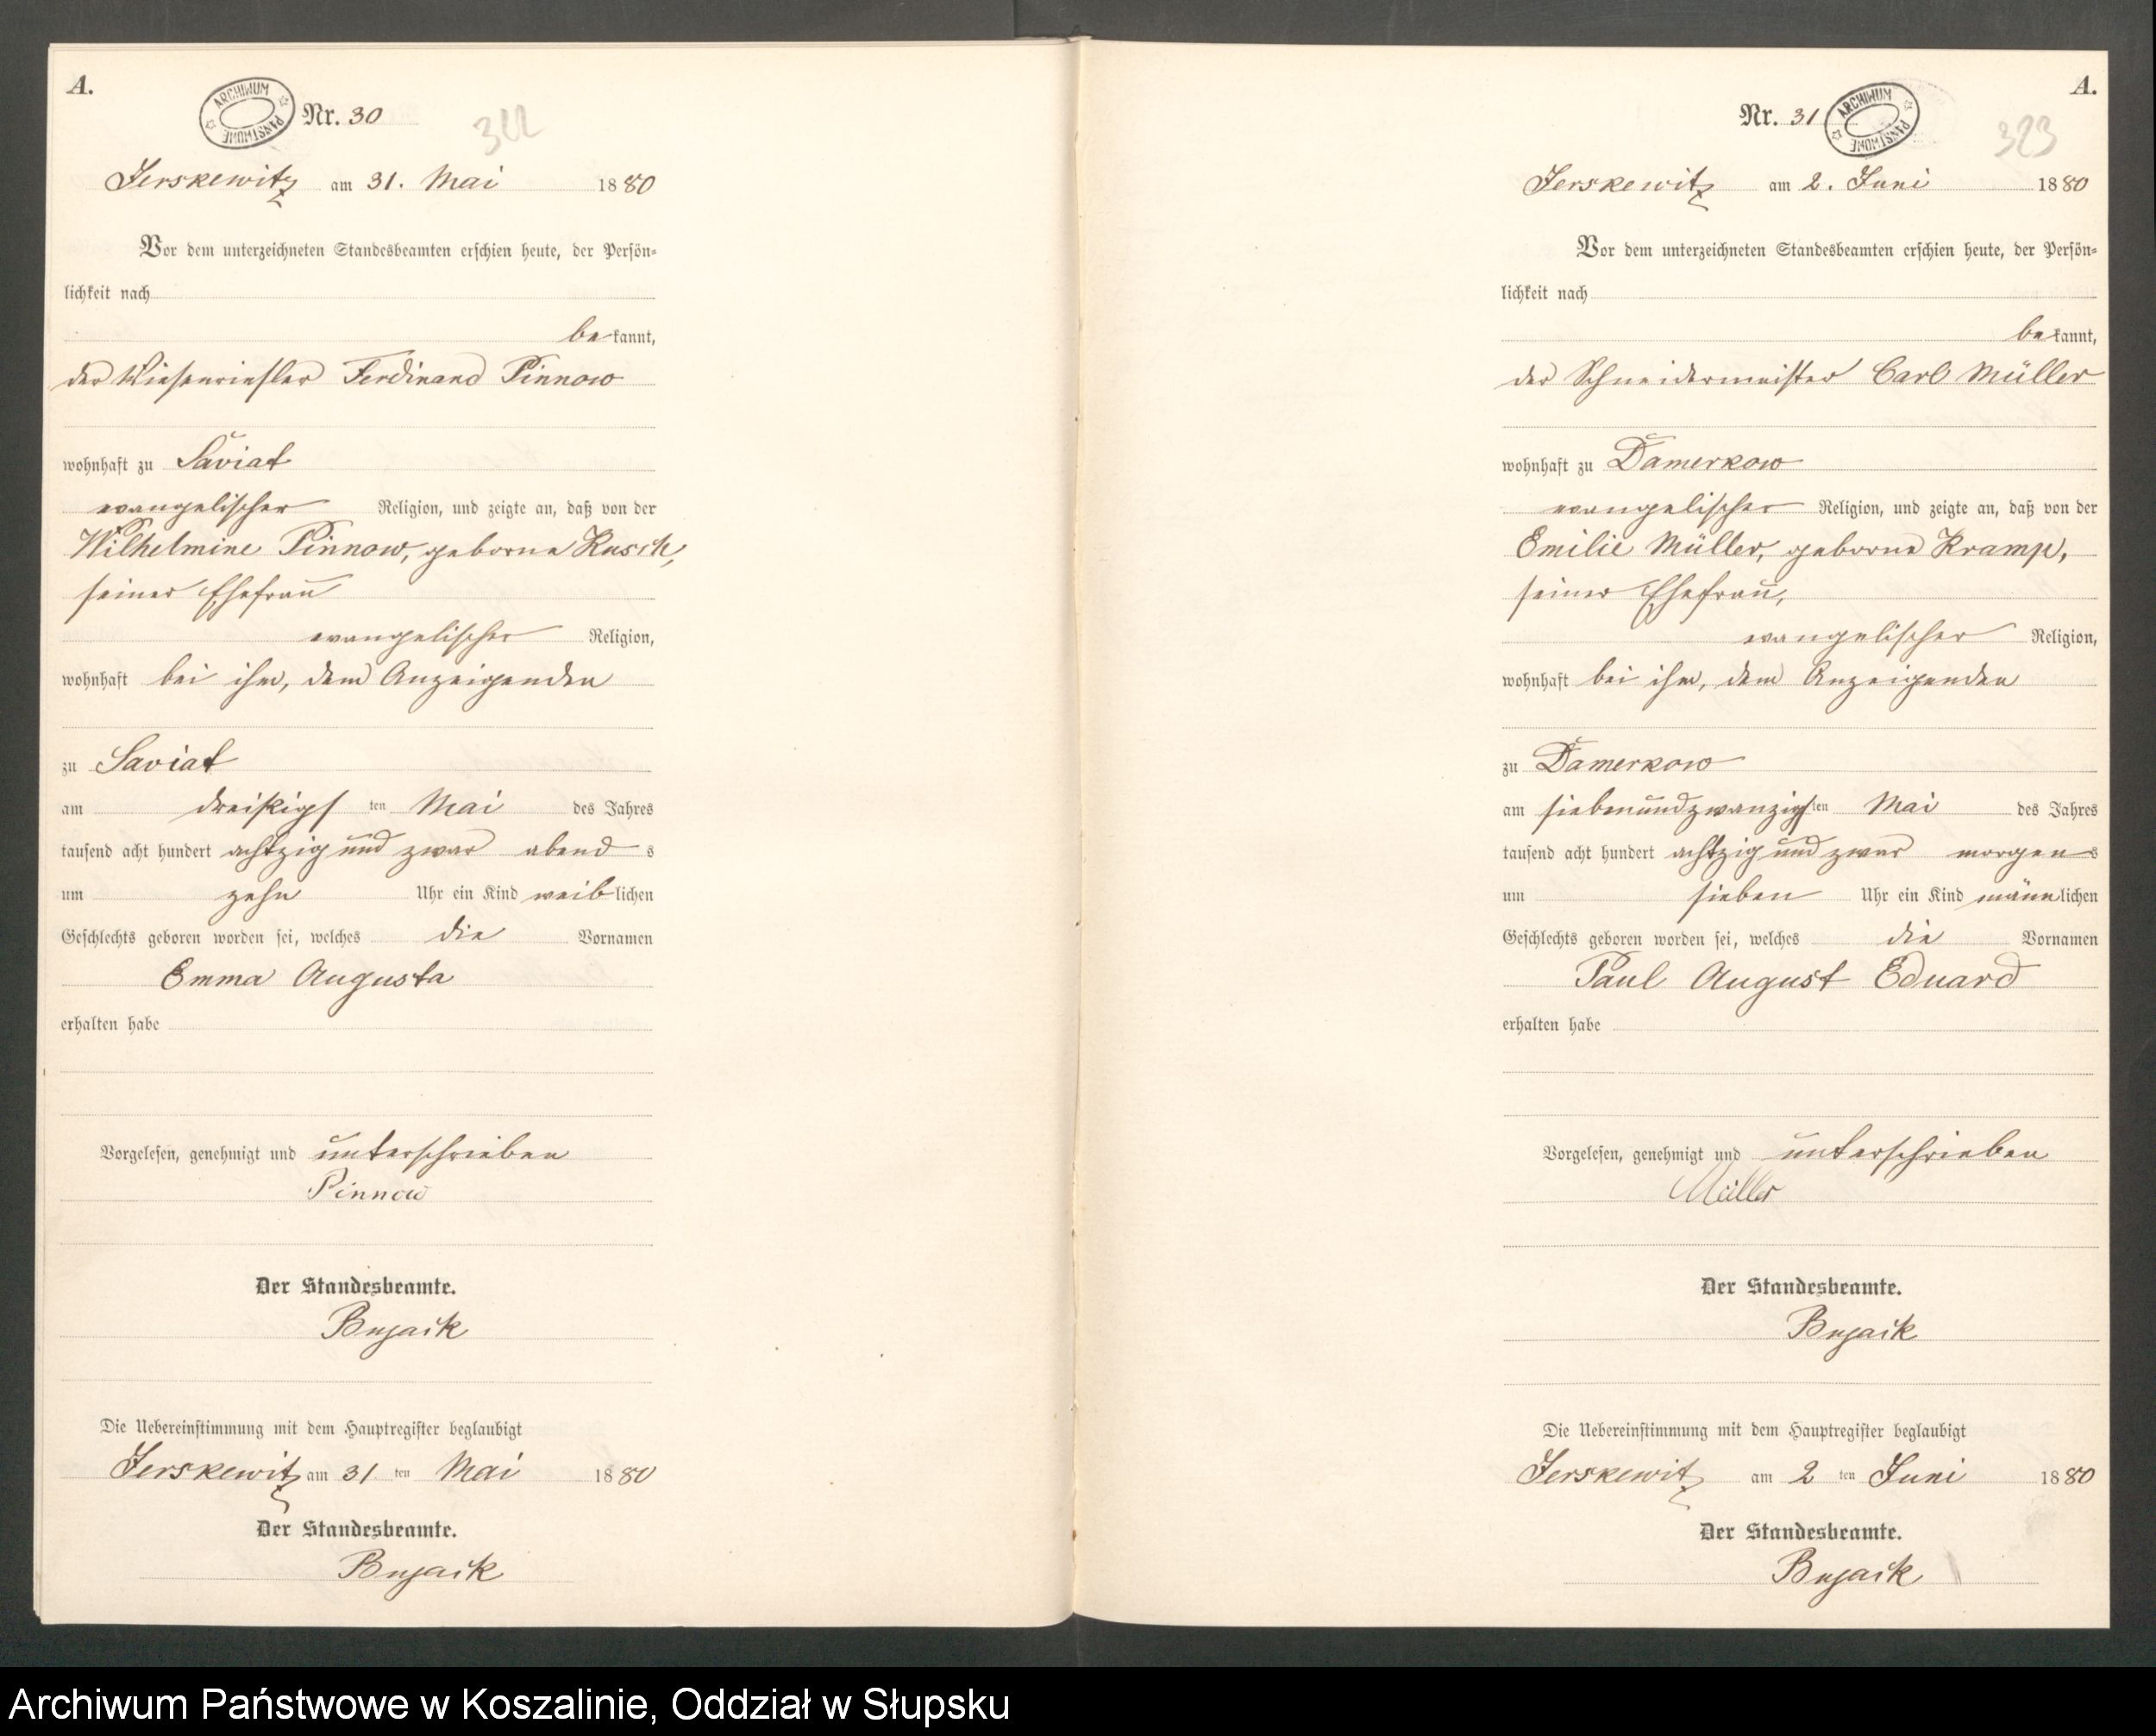 A.
ARCHIWUM PAŃSTWOWE
Nr. 30
322
Jerskewitz am 31. Mai 1880
Vor dem unterzeichneten Standesbeamten erschien heute, der Persön-
lichkeit nach
bekannt,
der Wiesenriesler Ferdinand Pinnow
wohnhaft zu Saviat
evangelischer Religion, und zeigte an, daß von der
Wilhelmine Pinnow, geborne Kusch,
seiner Ehefrau
evangelischer Religion,
wohnhaft bei ihm, dem Anzeigenden
zu Saviat
am dreißigsten Mai des Jahres
tausend acht hundert achtzig und zwar abends
um zehn Uhr ein Kind weiblichen
Geschlechts geboren worden sei, welches die Vornamen
Emma Augusta
erhalten habe
Vorgelesen, genehmigt und unterschrieben
Pinnow
Der Standesbeamte.
Die Uebereinstimmung mit dem Hauptregister beglaubigt
Jerskewitz am 31ten Mai 1880
Der Standesbeamte.
A.
Nr. 31
ARCHIWUM PAŃSTWOWE
323
Jerskewitz am 2. Juni 1880
Vor dem unterzeichneten Standesbeamten erschien heute, der Persön-
lichkeit nach
bekannt,
der Schneidermeister Carl Müller
wohnhaft zu Damerkow
evangelischer Religion, und zeigte an, daß von der
Emilie Müller, geborne Kramp,
seiner Ehefrau,
evangelischer Religion,
wohnhaft bei ihm, dem Anzeigenden
zu Damerkow
am siebenundzwanzigsten Mai des Jahres
tausend acht hundert achtzig und zwar morgens
um sieben Uhr ein Kind männlichen
Geschlechts geboren worden sei, welches die Vornamen
Paul August Eduard
erhalten habe
Vorgelesen, genehmigt und unterschrieben
Müller
Der Standesbeamte.
Die Uebereinstimmung mit dem Hauptregister beglaubigt
Jerskewitz am 2ten Juni 1880
Der Standesbeamte.
Archiwum Państwowe w Koszalinie, Oddział w Słupsku